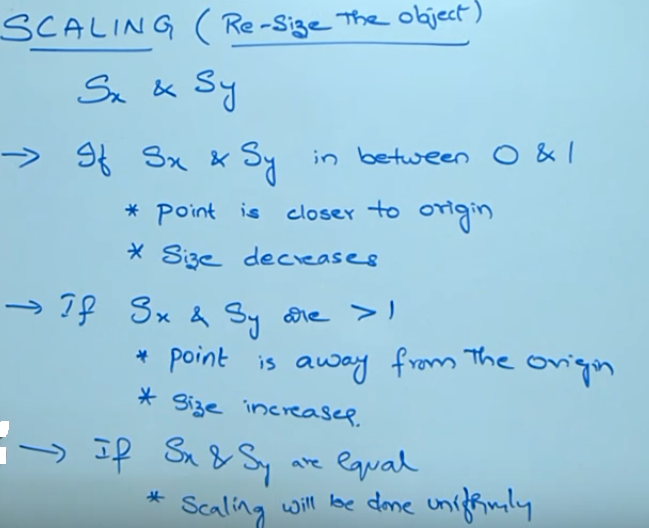 SCALING (Re-Size The object)
Sx & Sy
→ If Sx & Sy in between 0 & 1
* point is closer to origin
* Size decreases
→ If Sx & Sy are > 1
* point is away from The origin
* Size increases.
→ If Sx & Sy are equal
* Scaling will be done uniformly